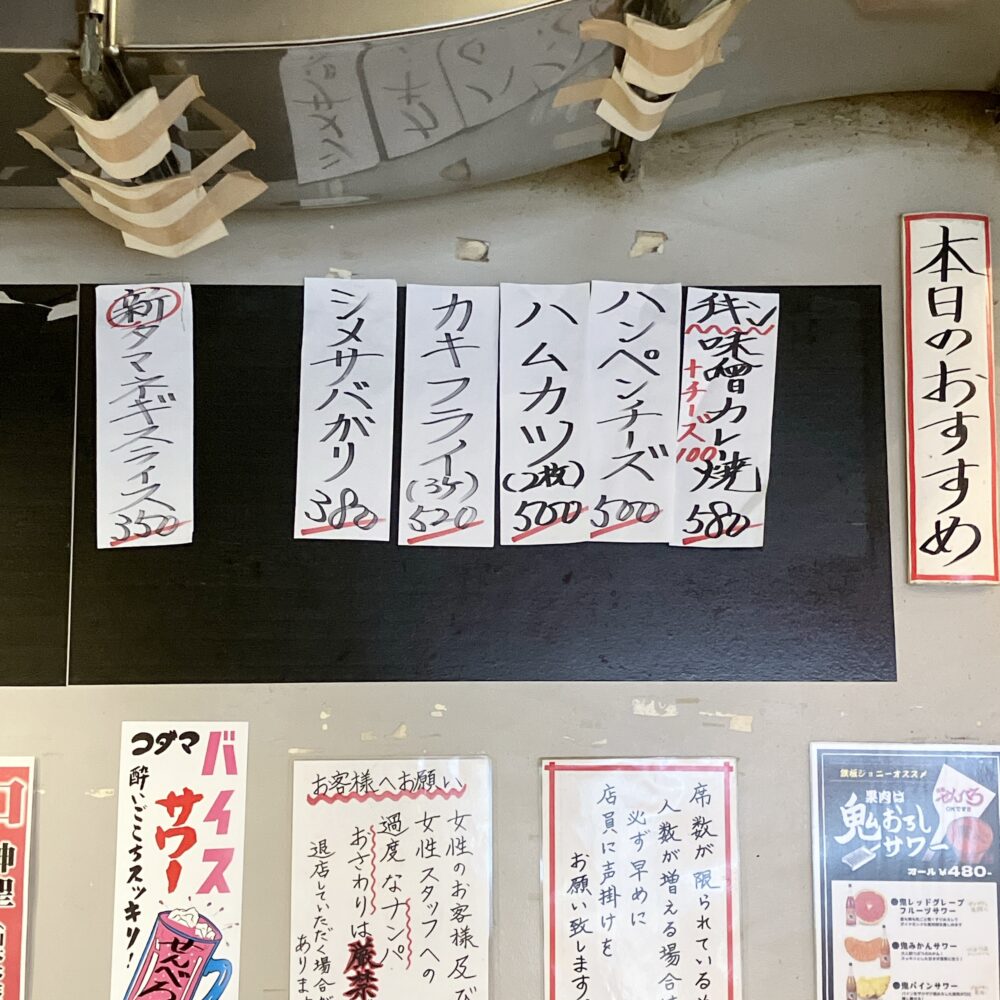 本日のおすすめ
チキン
味噌カレー焼
+チーズ100
580
ハンペンチーズ
500
ハムカツ
(2枚)
500
カキフライ
(3ケ)
520
シメサバがり
380
新タマネギスライス
350
鉄板ジョニーオススメ
果肉は
鬼おろし
サワー
せんべろ
オール¥480-
●鬼レッドグレープ
フルーツサワー
●鬼みかんサワー
●鬼パインサワー
席数が限られている
人数が増える場合
必ず早めに
店員に声掛けを
お願い致します
お客様へお願い
女性のお客様及び
女性スタッフへの
過度なナンパ
おさわりは厳禁
退店していただく場合が
あります
バイス
サワー
コダマ
酔いごこちスッキリ!
せんべろ